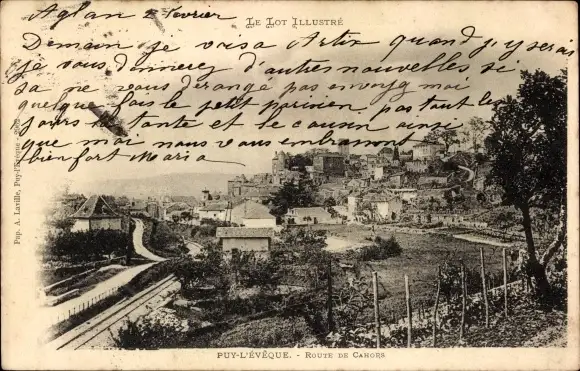 Aglan 2 Fevrier
LE LOT ILLUSTRÉ
Demain je vois a Artix quand j'y serai
je vous donnerez d'autres nouvelles si
sa ne vous dérange pas envoyez moi
quelque fois le petit parisien pas tout les
jours la tante et le cousin ainsi
que moi nous vous embrassont
bien fort Maria
Pap. A. Laville, Puy-l'Evêque
PUY-L'ÉVÊQUE. - ROUTE DE CAHORS